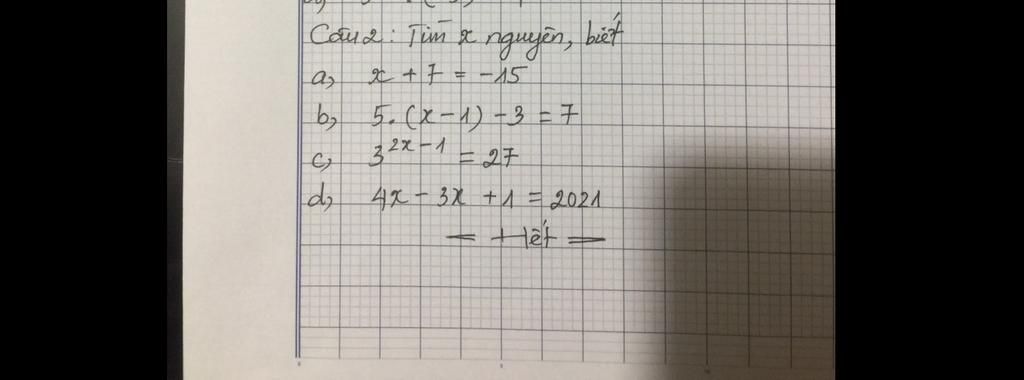 Câu 2: Tìm x nguyên, biết
a, x + 7 = -15
b, 5. (x - 1) - 3 = 7
c, 3^{2x - 1} = 27
d, 4x - 3x + 1 = 2021
Hết